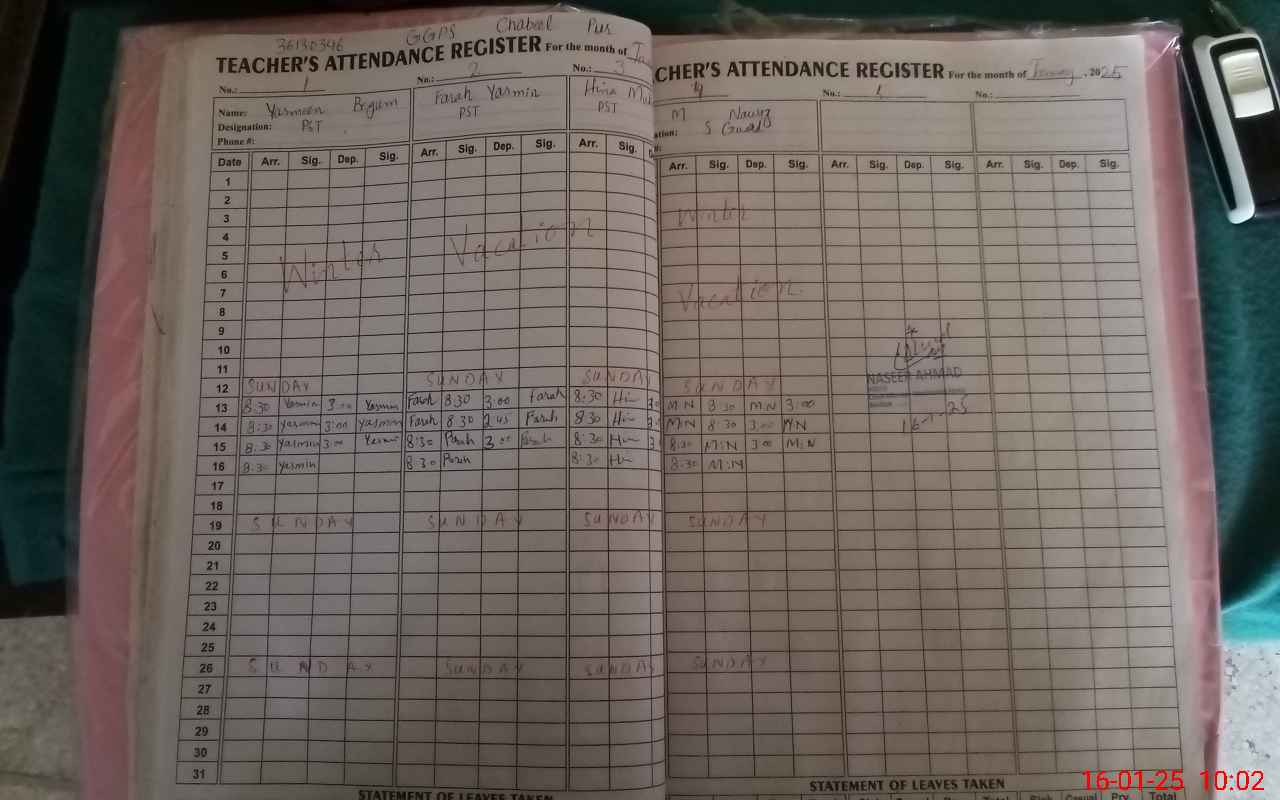 36130346 GGPS Chabeel Pur
TEACHER'S ATTENDANCE REGISTER For the month of
No.: 1 No.: 2 No.: 3
Name: Yasmeen Begum Farah Yasmin Hina
Designation: PST PST PST
Phone #:
Date Arr. Sig. Dep. Sig. Arr. Sig. Dep. Sig. Arr. Sig.
1
2
3
4
5
6
7
8
9
10
11
Winter Vacation
12 SUNDAY SUNDAY SUNDAY
13 8:30 Yasmin 3:00 Yasmin Farah 8:30 3:00 Farah 8:30 Hin
14 8:30 Yasmin 3:00 Yasmin Farah 8 30 2:45 Farah 8:30 Hin
15 8:30 Yasmin 3:00 Yasmin 8:30 Farah 3:00 Farah 8:30 Hin
16 8:30 Yasmin 8:30 Farah 8:30 Hin
17
18
19 SUNDAY SUNDAY SUNDAY
20
21
22
23
24
25
26 SUNDAY SUNDAY SUNDAY
27
28
29
30
31
STATEMENT OF LEAVES TAKEN
CHER'S ATTENDANCE REGISTER For the month of January, 2025
4 No.: 1 No.:
M Nawaz
ation: S Guard
Arr. Sig. Dep. Sig. Arr. Sig. Dep. Sig. Arr. Sig. Dep. Sig.
Winter
Vacation
NASEER AHMAD
16-1-25
SUNDAY
M.N 8 30 M.N 3:00
M.N 8:30 3:00 M.N
8:30 M.N 3:00 M.N
8:30 M.N
SUNDAY
SUNDAY
STATEMENT OF LEAVES TAKEN
16-01-25 10:02